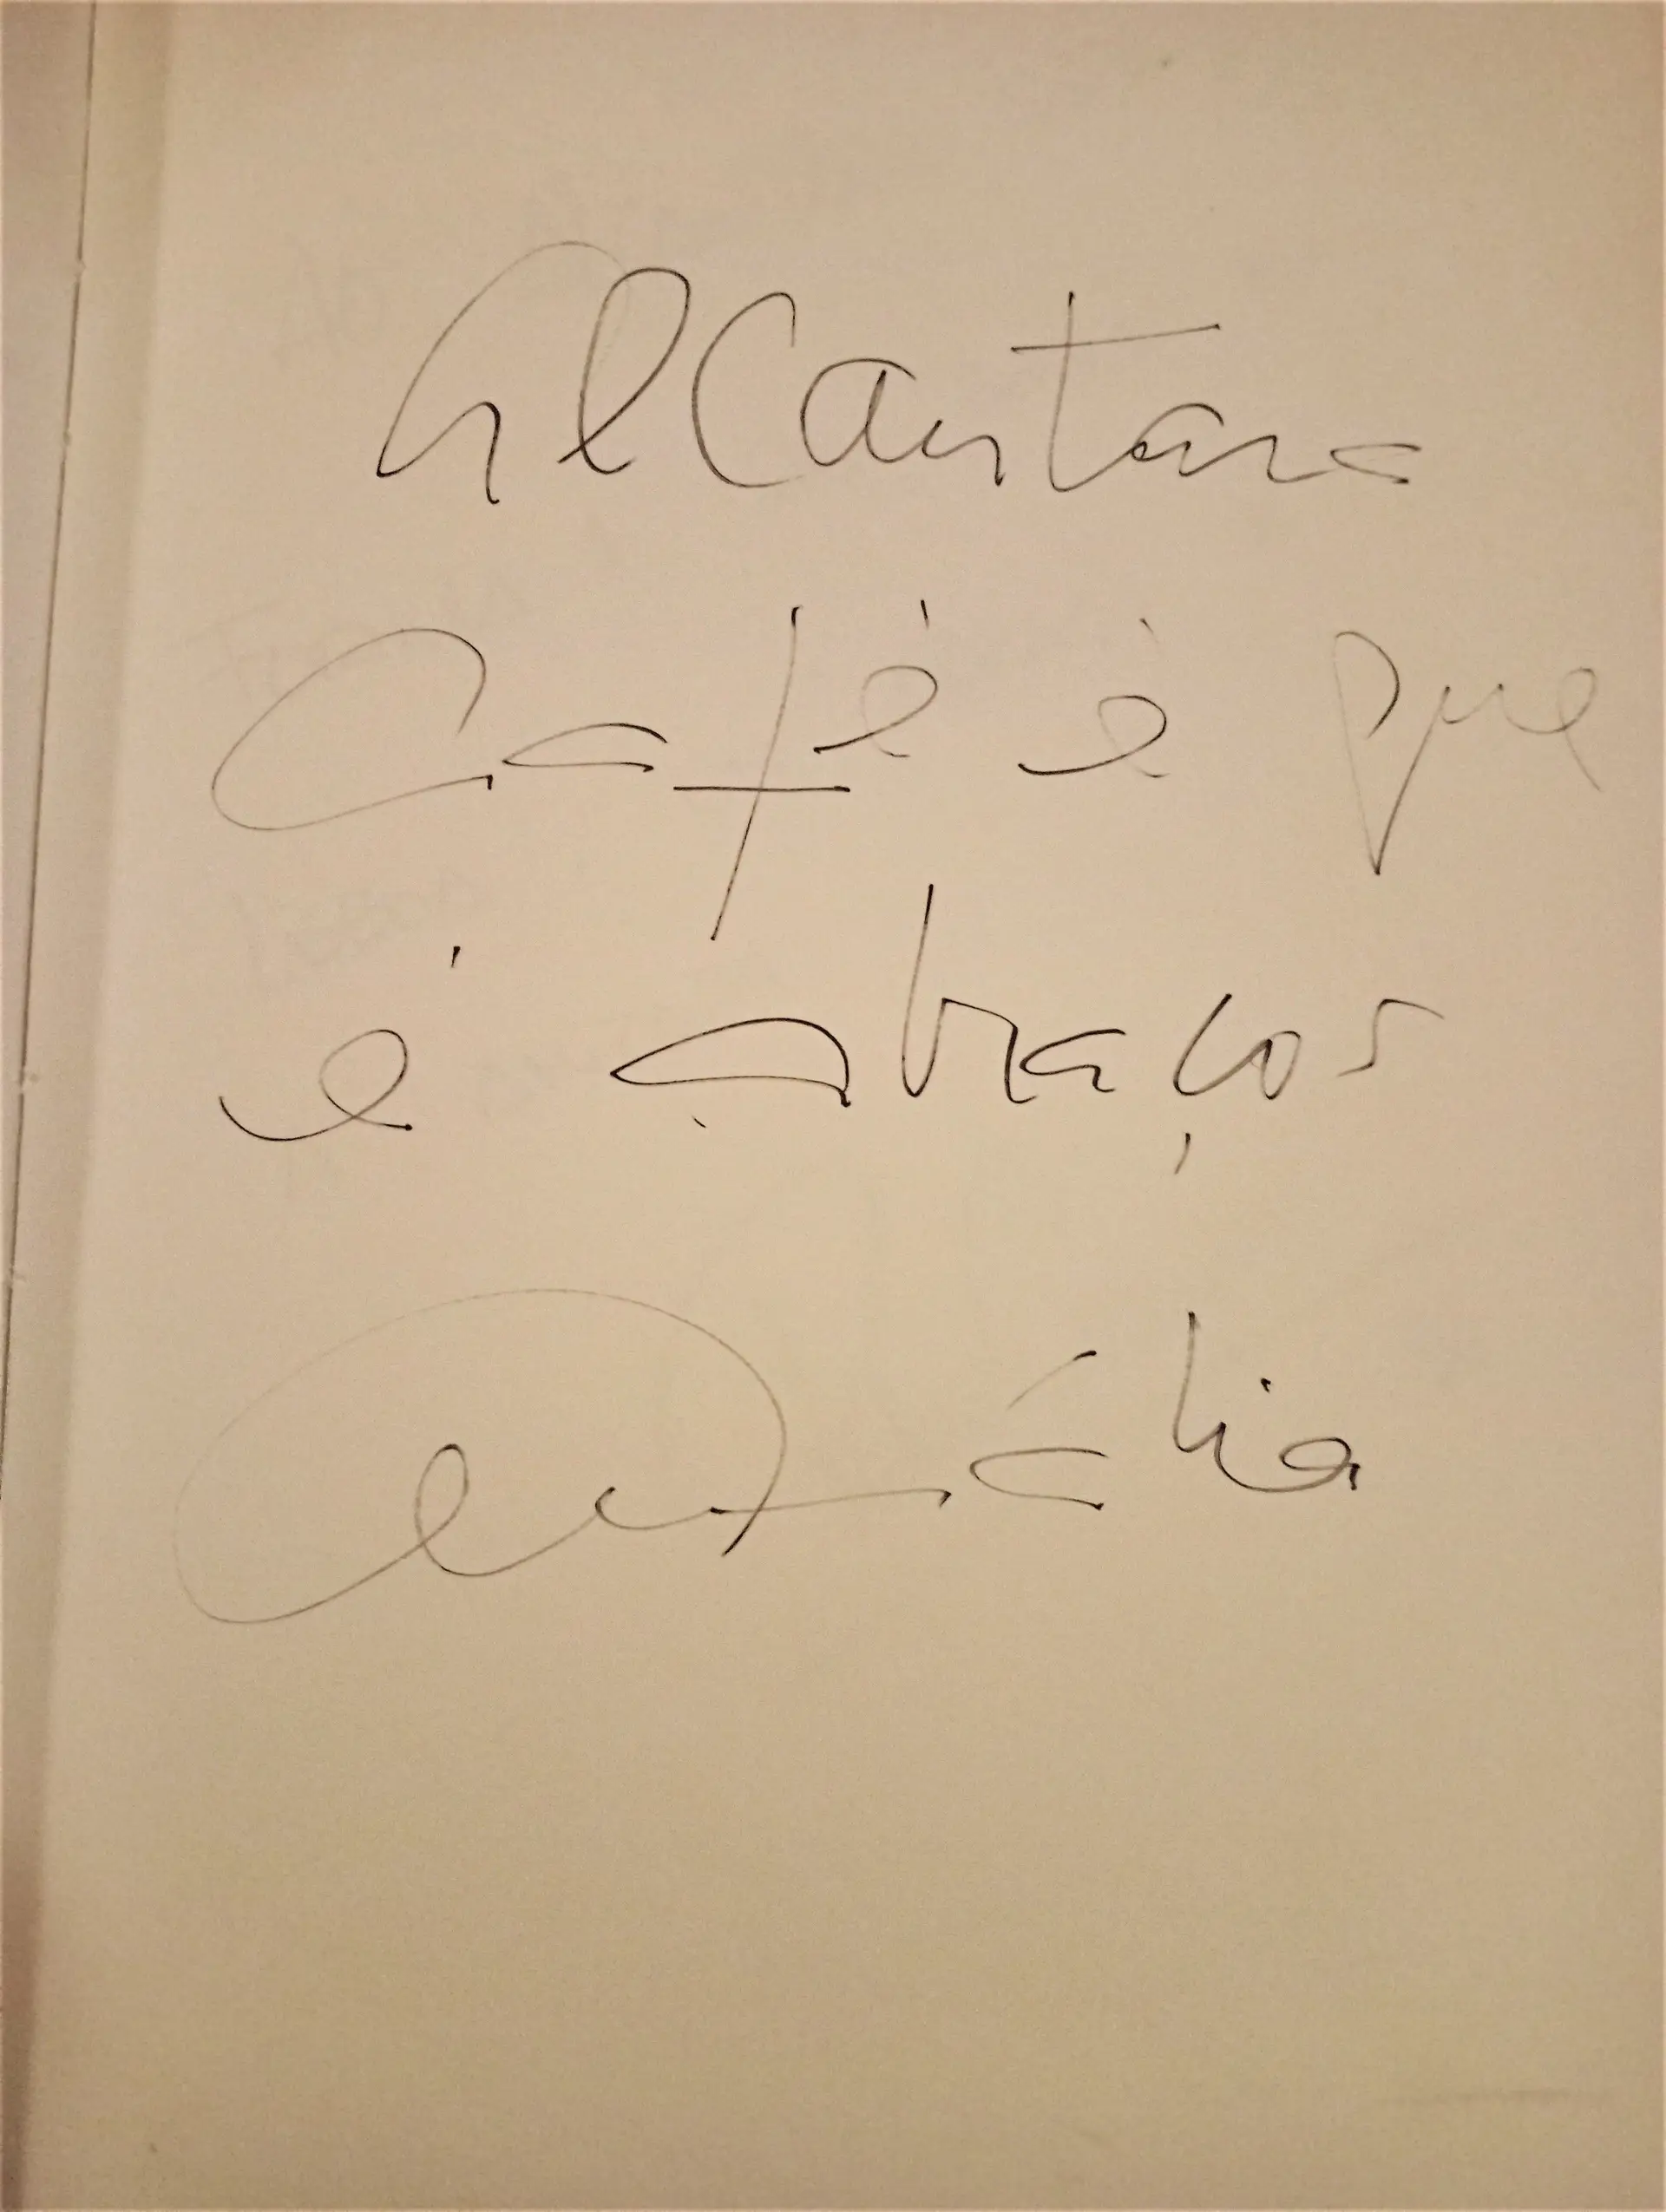 AlCantara
Café é que
é abraços